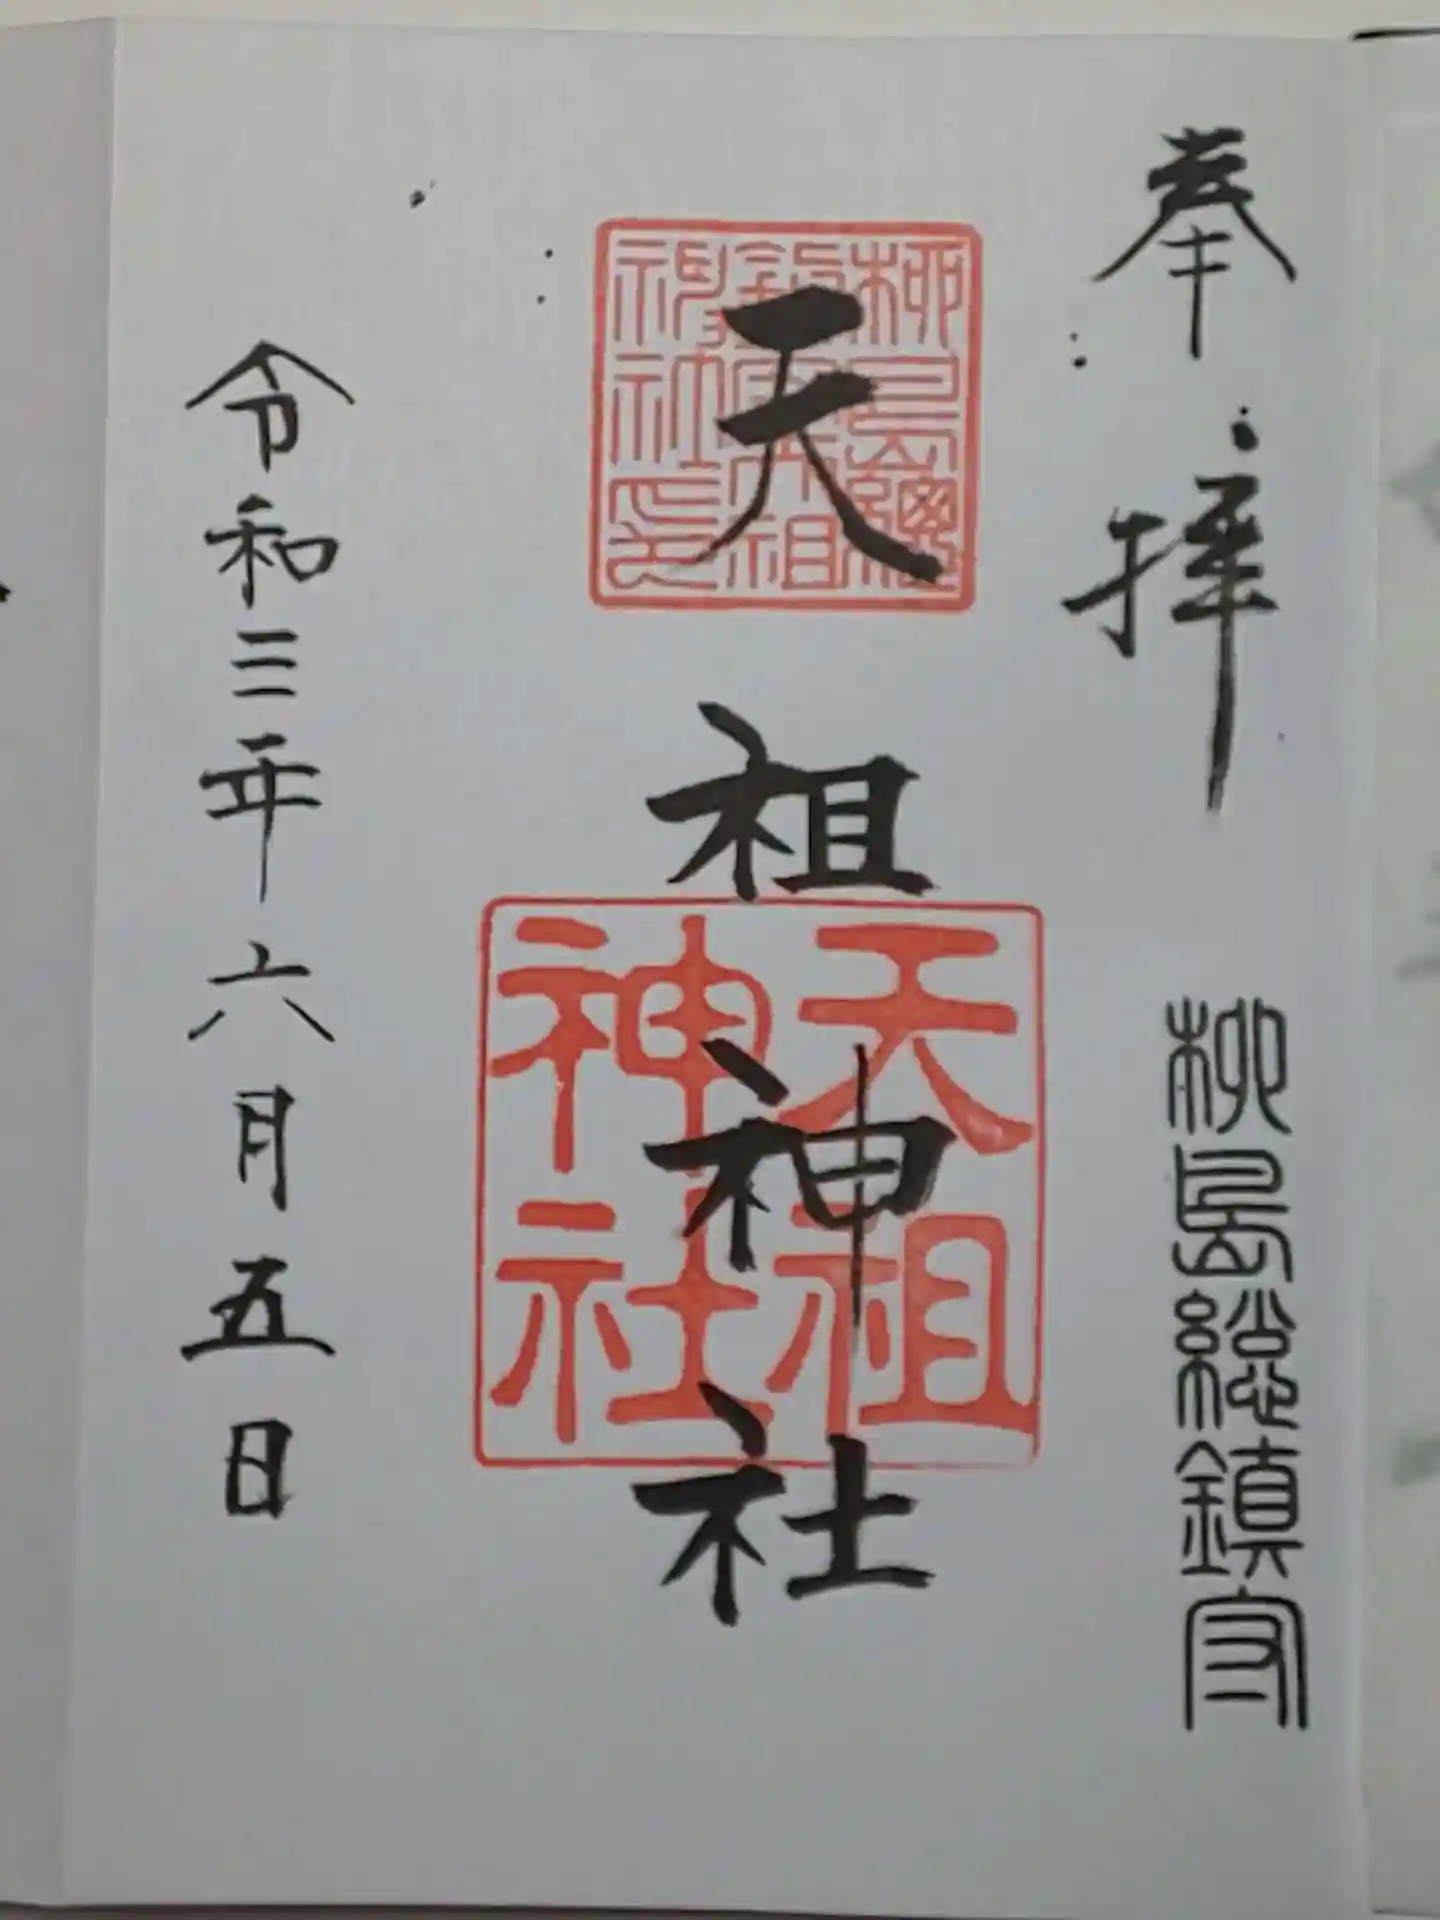 奉拝
柳島總鎮守
天祖神社
柳島總
鎮守天祖
神社印
天祖
神社
令和三年六月五日